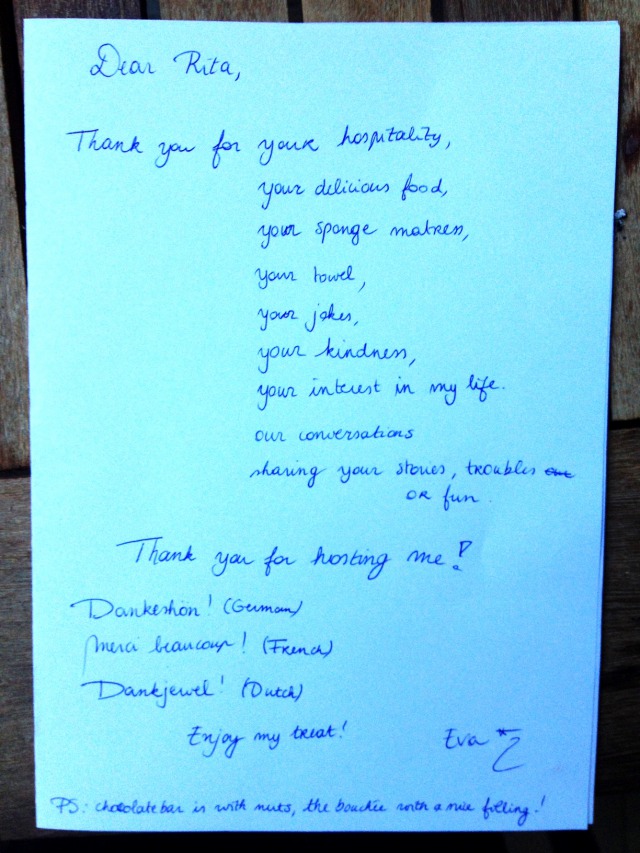 Dear Rita,
Thank you for your hospitality,
your delicious food,
your sponge matress,
your towel,
your jokes,
your kindness,
your interest in my life.
our conversations
sharing your stories, troubles
or fun.
Thank you for hosting me!
Dankeshön! (German)
Merci beaucoup! (French)
Dankjewel! (Dutch)
Enjoy my treat!
Eva
PS: chocolatebar is with nuts, the bouchée with a nice filling!